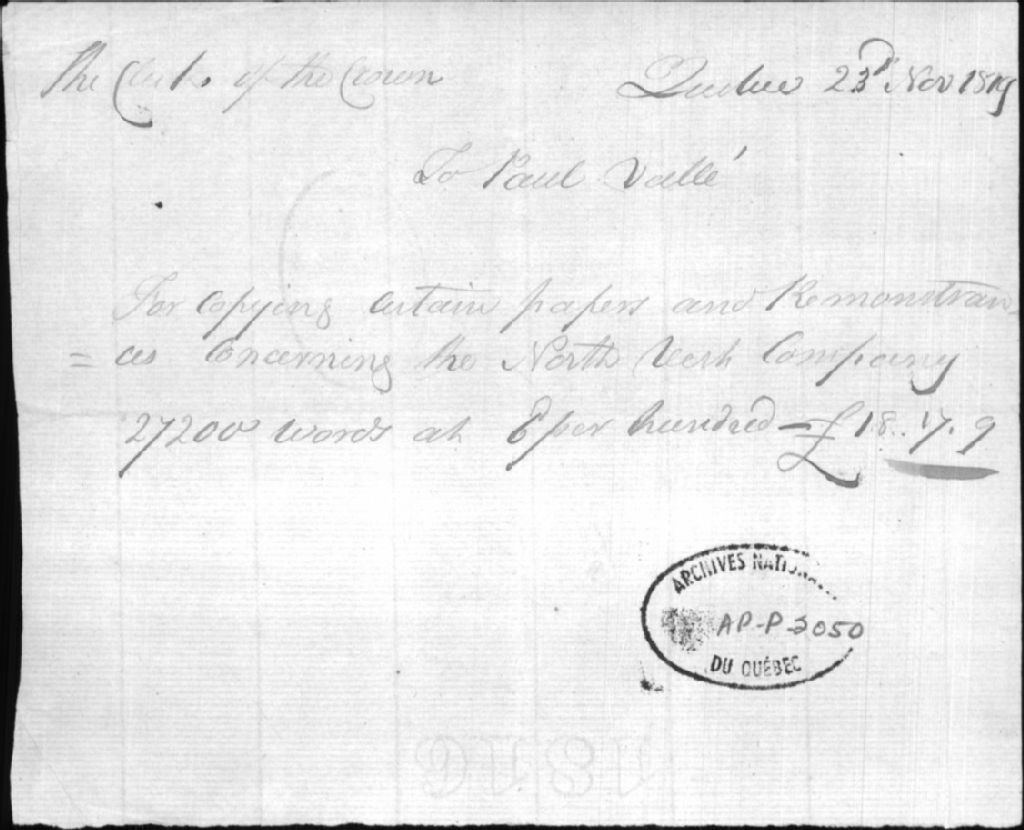 The Clerk of the Crown
Quebec 23d Nov 1819
To Paul Vallé
For Copying certain papers and Remonstran
= ces Concerning the North West Company
27200 words at 6d per hundred — £
ARCHIVES NATIONA
AP-P-2050
DU QUÉBEC